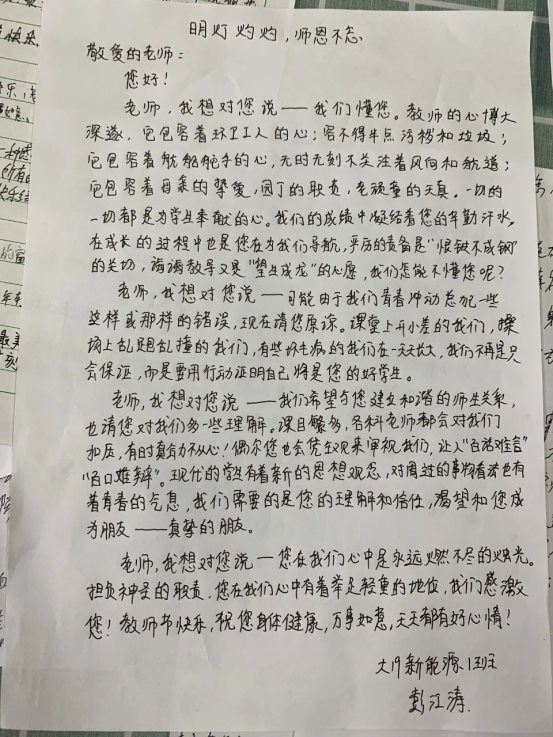 明灯灼灼，师恩不忘
敬爱的老师：
您好！
老师，我想对您说——我们懂您。教师的心博大
深邃，它包容着环卫工人的心；容不得半点污秽和垃圾；
它包容着航船舵手的心，无时无刻不关注着风向和航道；
它包容着母亲的挚爱，园丁的职责，老顽童的天真。一切的
一切都是为学生奉献的心。我们的成绩中凝结着您的辛勤汗水，
在成长的过程中也是您在为我们导航，严厉的责备是“恨铁不成钢”
的关切，谆谆教导又是“望生成龙”的心愿，我们怎能不懂您呢？
老师，我想对您说——可能由于我们青春冲动总犯一些
这样或那样的错误，现在请您原谅。课堂上开小差的我们，操
场上乱跑乱撞的我们，有些坏毛病的我们在一天天长大，我们不再是只
会保证，而是要用行动证明自己将是您的好学生。
老师，我想对您说——我们希望与您建立和谐的师生关系，
也请您对我们多一些理解。课目繁多，各科老师都会对我们
加压，有时真会力不从心！偶尔您也会凭主观来审视我们，让人“百诺难言”
“百口难辩”。现代的学生有着新的思想观念，对周边的事物看法也有
着青春的气息，我们需要的是您的理解和信任，渴望和您成
为朋友——真挚的朋友。
老师，我想对您说—您在我们心中是永远燃不尽的烛光。
担负神圣的职责，您在我们心中有着举足轻重的地位，我们感激
您！教师节快乐，祝您身体健康，万事如意，天天都有好心情！
新能源1班
彭江涛